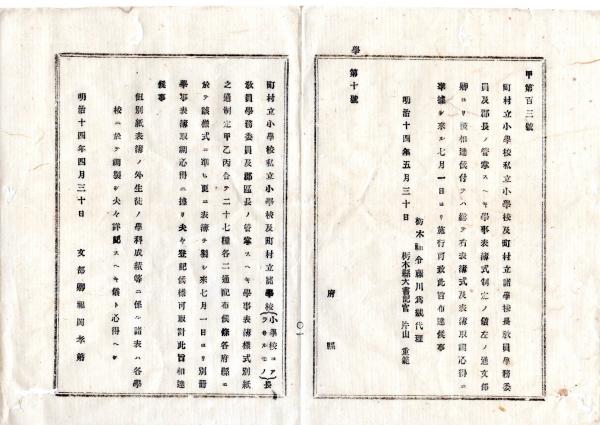 甲第百三號
町村立小學校私立小學校及町村立諸學校長敎員學務委
員及郡長ノ管掌スヘキ學事表簿式制定ノ儀左ノ通文部
卿ヨリ被相達候付テハ總テ右表簿式及表簿取調心得ニ
準據シ來ル七月一日ヨリ施行可致此旨布達候事
明治十四年五月三十日
栃木縣令藤川爲親代理
栃木縣大書記官 片山重範
學第十號
府縣
町村立小學校私立小學校及町村立諸學校(小學校ニアラサルモノ)長
敎員學務委員及郡區長ノ管掌スヘキ學事表簿樣式別紙
之通制定甲乙丙合テ二十七種各二通配布候條各府縣ニ
於テ該樣式ニ準シ更ニ表簿ヲ製シ來七月一日ヨリ別冊
學事表簿取調心得ニ據リ夫々登記候樣可取計此旨相達
候事
但別紙表簿ノ外生徒ノ學科成績等ニ係ル諸表ハ各學
校ニ於テ調製シ夫々詳記スヘキ儀ト心得ヘシ
明治十四年四月三十日
文部卿福岡孝弟
〇一